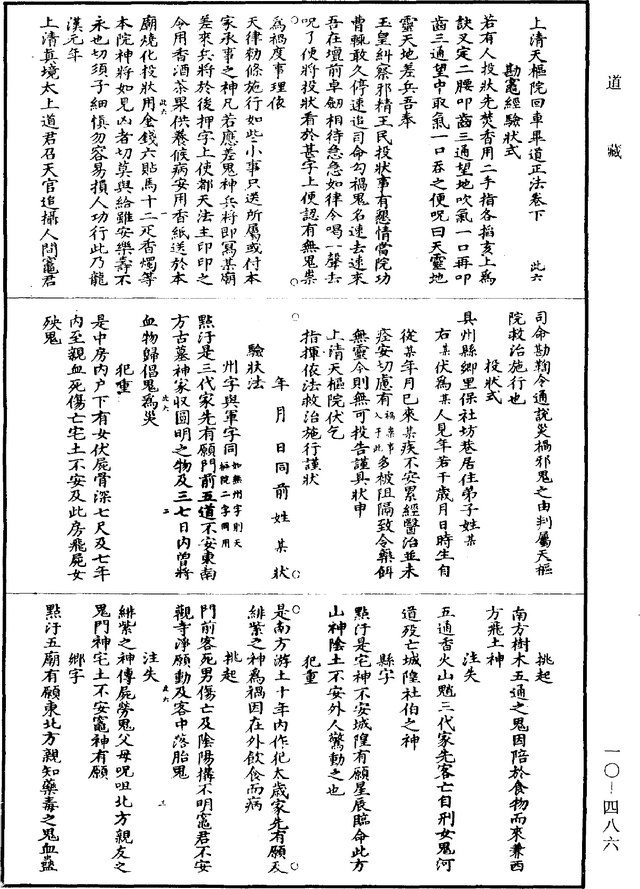 道藏
上清天樞院回車畢道正法卷下
此六
勘竈經驗狀式
若有人投狀先焚香用二手指各搯亥上為
訣又定二腰叩齒三通望地吹氣一口再叩
齒三通望中取氣一口吞之便呪曰天靈地
靈天地差兵吾奉
玉皇糾察邪精王民投狀事有懇情當院功
曹輒敢久停速追司命勾禍鬼名速去速來
吾在壇前卓劍相待急急如律令喝一聲去
呪了便將投狀看於甚字上便認有無鬼祟
為禍度事理依
天律勑條施行如些小事只送所屬或付本
家承事之神凡若應差鬼神兵將即寫某廟
差來兵將於後押字上使都天法主印印之
令用香酒茶果供養候病安用香紙送於本
廟燒化投狀用金錢六貼馬十二疋香燭等
本院神將如見凶者切莫與給雖安樂壽不
永也切須子細慎勿容易損人功行此乃龍
漢元年
上清真境太上道君召天官追攝人間竈君
司命勘鞫令通說災禍邪鬼之由判屬天樞
院救治施行也
投狀式
具州縣鄉里保社坊巷居住弟子姓某
右某伏為某人見年若干歲月日時生自
從某年月已來某疾不安累經醫治並未
痊安切慮有禍祟事入于此多被阻隔致令藥餌
無靈今則無可投告謹具狀申
上清天樞院伏乞
指揮依法救治施行謹狀
年月日同前姓某狀
驗狀法
州字與軍字同如無州字則天樞院二字同用
點汙是三代家先有願門前五道不安東南
方古墓神家収圓明之物及三七日內曾將
血物歸倡鬼為災
犯重
是中房內戶下有女伏屍骨深七尺及七年
內至親血死傷亡宅土不安及此房飛屍女
殃鬼
挑起
南方樹木五通之鬼因陪於食物而來兼西
方飛土神
注失
五通香火山魈三代家先客亡自刑女鬼河
道歿亡城隍社伯之神
縣字
點汙是宅神不安城隍有願星辰臨命此方
山神陰土不安外人驚動之也
犯重
是南方游土十年內作犯太歲家先有願及
緋紫之神為禍因在外飲食而病
挑起
門前客死男傷亡及陰陽搆不明竈君不安
觀寺淨願動及客中落胎鬼
注失
緋紫之神傳屍勞鬼父母呪咀北方親友之
鬼門神宅土不安竈神有願
鄉字
點汙五廟有願東北方親知藥毒之鬼血蠱
一〇—四八六